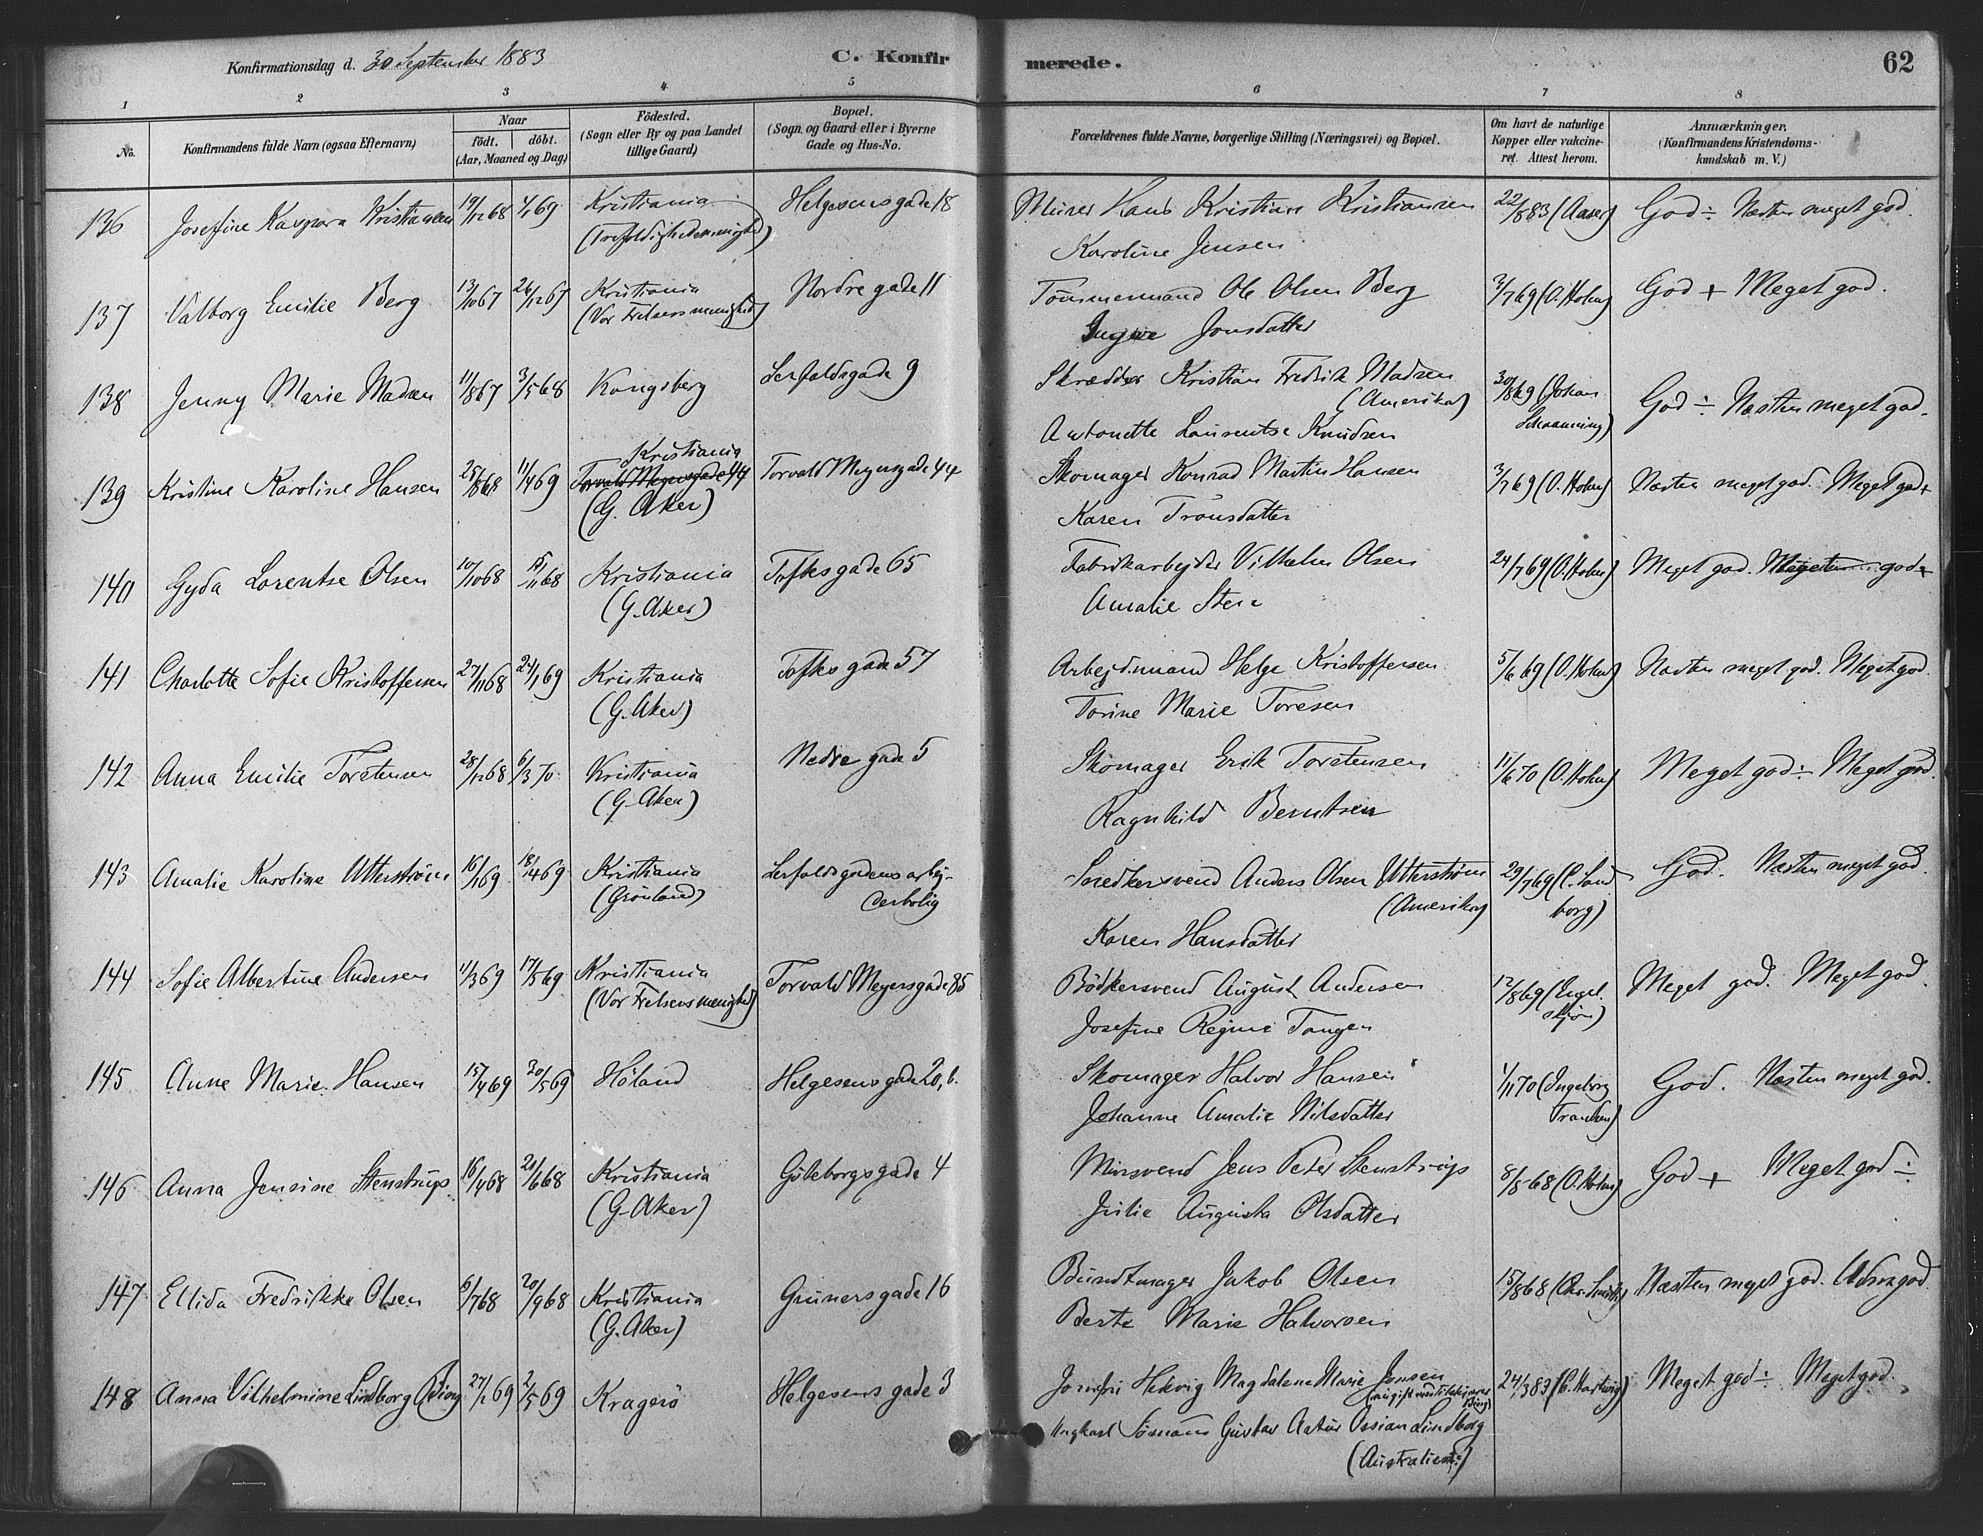 Konfirmationsdag d. 30 September 1883
C. Konfirmerede.
62
1 2 3 4 5 6 7 8
No.
Konfirmandens fulde Navn (ogsaa Efternavn)
Naar
födt. döbt.
(Aar, Maaned og Dag)
Födested.
(Sogn eller By og paa Landet
tillige Gaard)
Bopæl.
(Sogn og Gaard eller i Byerne
Gade og Hus-No.
Forældrenes fulde Navne, borgerlige Stilling (Næringsvei) og Bopæl.
Om havt de naturlige
Kopper eller vakcine-
ret. Attest herom.
Anmærkninger.
(Konfirmandens Kristendoms-
kundskab m. V.)
136 Josefine Kaspara Kristiansen 19/12 68 4/1 69 Kristiania Helgesensgade 18 Murer Hans Kristian Kristiansen 22/8 83 (Aaser) God ÷ Næsten meget god.
(Trefoldighedsmenighed)
Karoline Jensen
137 Valborg Emilie Berg 13/10 67 26/12 67 Kristiania Nordregade 11 Tømmermand Ole Olsen Berg 3/7 69 (O. Holm) God + Meget god.
(Vor Frelsers menighed)
Jonsdatter
138 Jenny Marie Madsen 11/8 67 3/5 68 Kongsberg Lerfaldsgade 9 Skrædder Kristian Fredrik Madsen 30/8 69 (Johan God ÷ Næsten meget god.
(Amerika) Schaanning)
Antonette Laurentse Knudsen
139 Kristine Karoline Hansen 25/8 68 11/4 69 Kristiania Torvald Meyersgade 44 Skomager Konrad Martin Hansen 3/7 69 (O. Holm) Næsten meget god. Meget god +
Torvald Meyersgade 44
(G. Aker)
Karen Tronsdatter
140 Gyda Lorentse Olsen 10/10 68 /11 68 Kristiania Toftesgade 65 Fabrikarbejder Vilhelm Olsen 24/7 69 (O. Holm) Meget god. god
(G. Aker)
Amalie
141 Charlotte Sofie Kristoffersen 27/11 68 24/1 69 Kristiania Toftesgade 57 Arbejdsmand Helge Kristoffersen 5/6 69 (O. Holm) Næsten meget god. Meget god.
(G. Aker)
Torine Marie Toresen
142 Anna Emilie Torstensen 28/12 68 6/3 70 Kristiania Nedre gade 5 Skomager Erik Torstensen 11/6 70 (O. Holm) Meget god ÷ Meget god.
(G. Aker)
Ragnhild Berntsen
143 Amalie Karoline Utterström 16/1 69 18/4 69 Kristiania Lerfaldsgadens arbej- Snedkersvend Anders Olsen Utterström 29/7 69 (C. Sand God. Næsten meget god.
(Grönland) derbolig (Amerika) borg)
Karen Hansdatter
144 Sofie Albertine Andersen 11/3 69 17/5 69 Kristiania Torvald Meyersgade 85 Bödkersvend August Andersen 12/8 69 (Engel- Meget god. Meget god.
(Vor Frelsers menighed) skjön)
Josefine Regine Tangen
145 Anne Marie Hansen 15/4 69 30/5 69 Höland Helgesensgade 20, b. Skomager Halvor Hansen 1/11 70 (Ingeborg God. Næsten meget god.
Johanne Amalie Nilsdatter
146 Anna Jensine Stenstrup 16/4 68 28/6 68 Kristiania Göteborgsgade 4 Mursvend Jens Peter Stenstrup 8/8 68 (O. Holm) God + Meget god ÷
(G. Aker)
Julie Augusta Olsdatter
147 Ellida Fredrikke Olsen 6/7 68 20/9 68 Kristiania Grunersgade 16 Bundtmager Jakob Olsen 15/8 68 (Chr. Smith) Næsten meget god. Udm. god
(G. Aker)
Berte Marie Halvorsen
148 Anna Vilhelmine Lindborg (Bing) 27/1 69 2/5 69 Kragerö Helgesensgade 3 Jomfru Hedvig Magdalene Marie Jensen 24/3 83 (C. Hartvig) Meget god ÷ Meget god.
Ungkarl Sömand Gustav Artur Ossian Lindborg
(Australien)